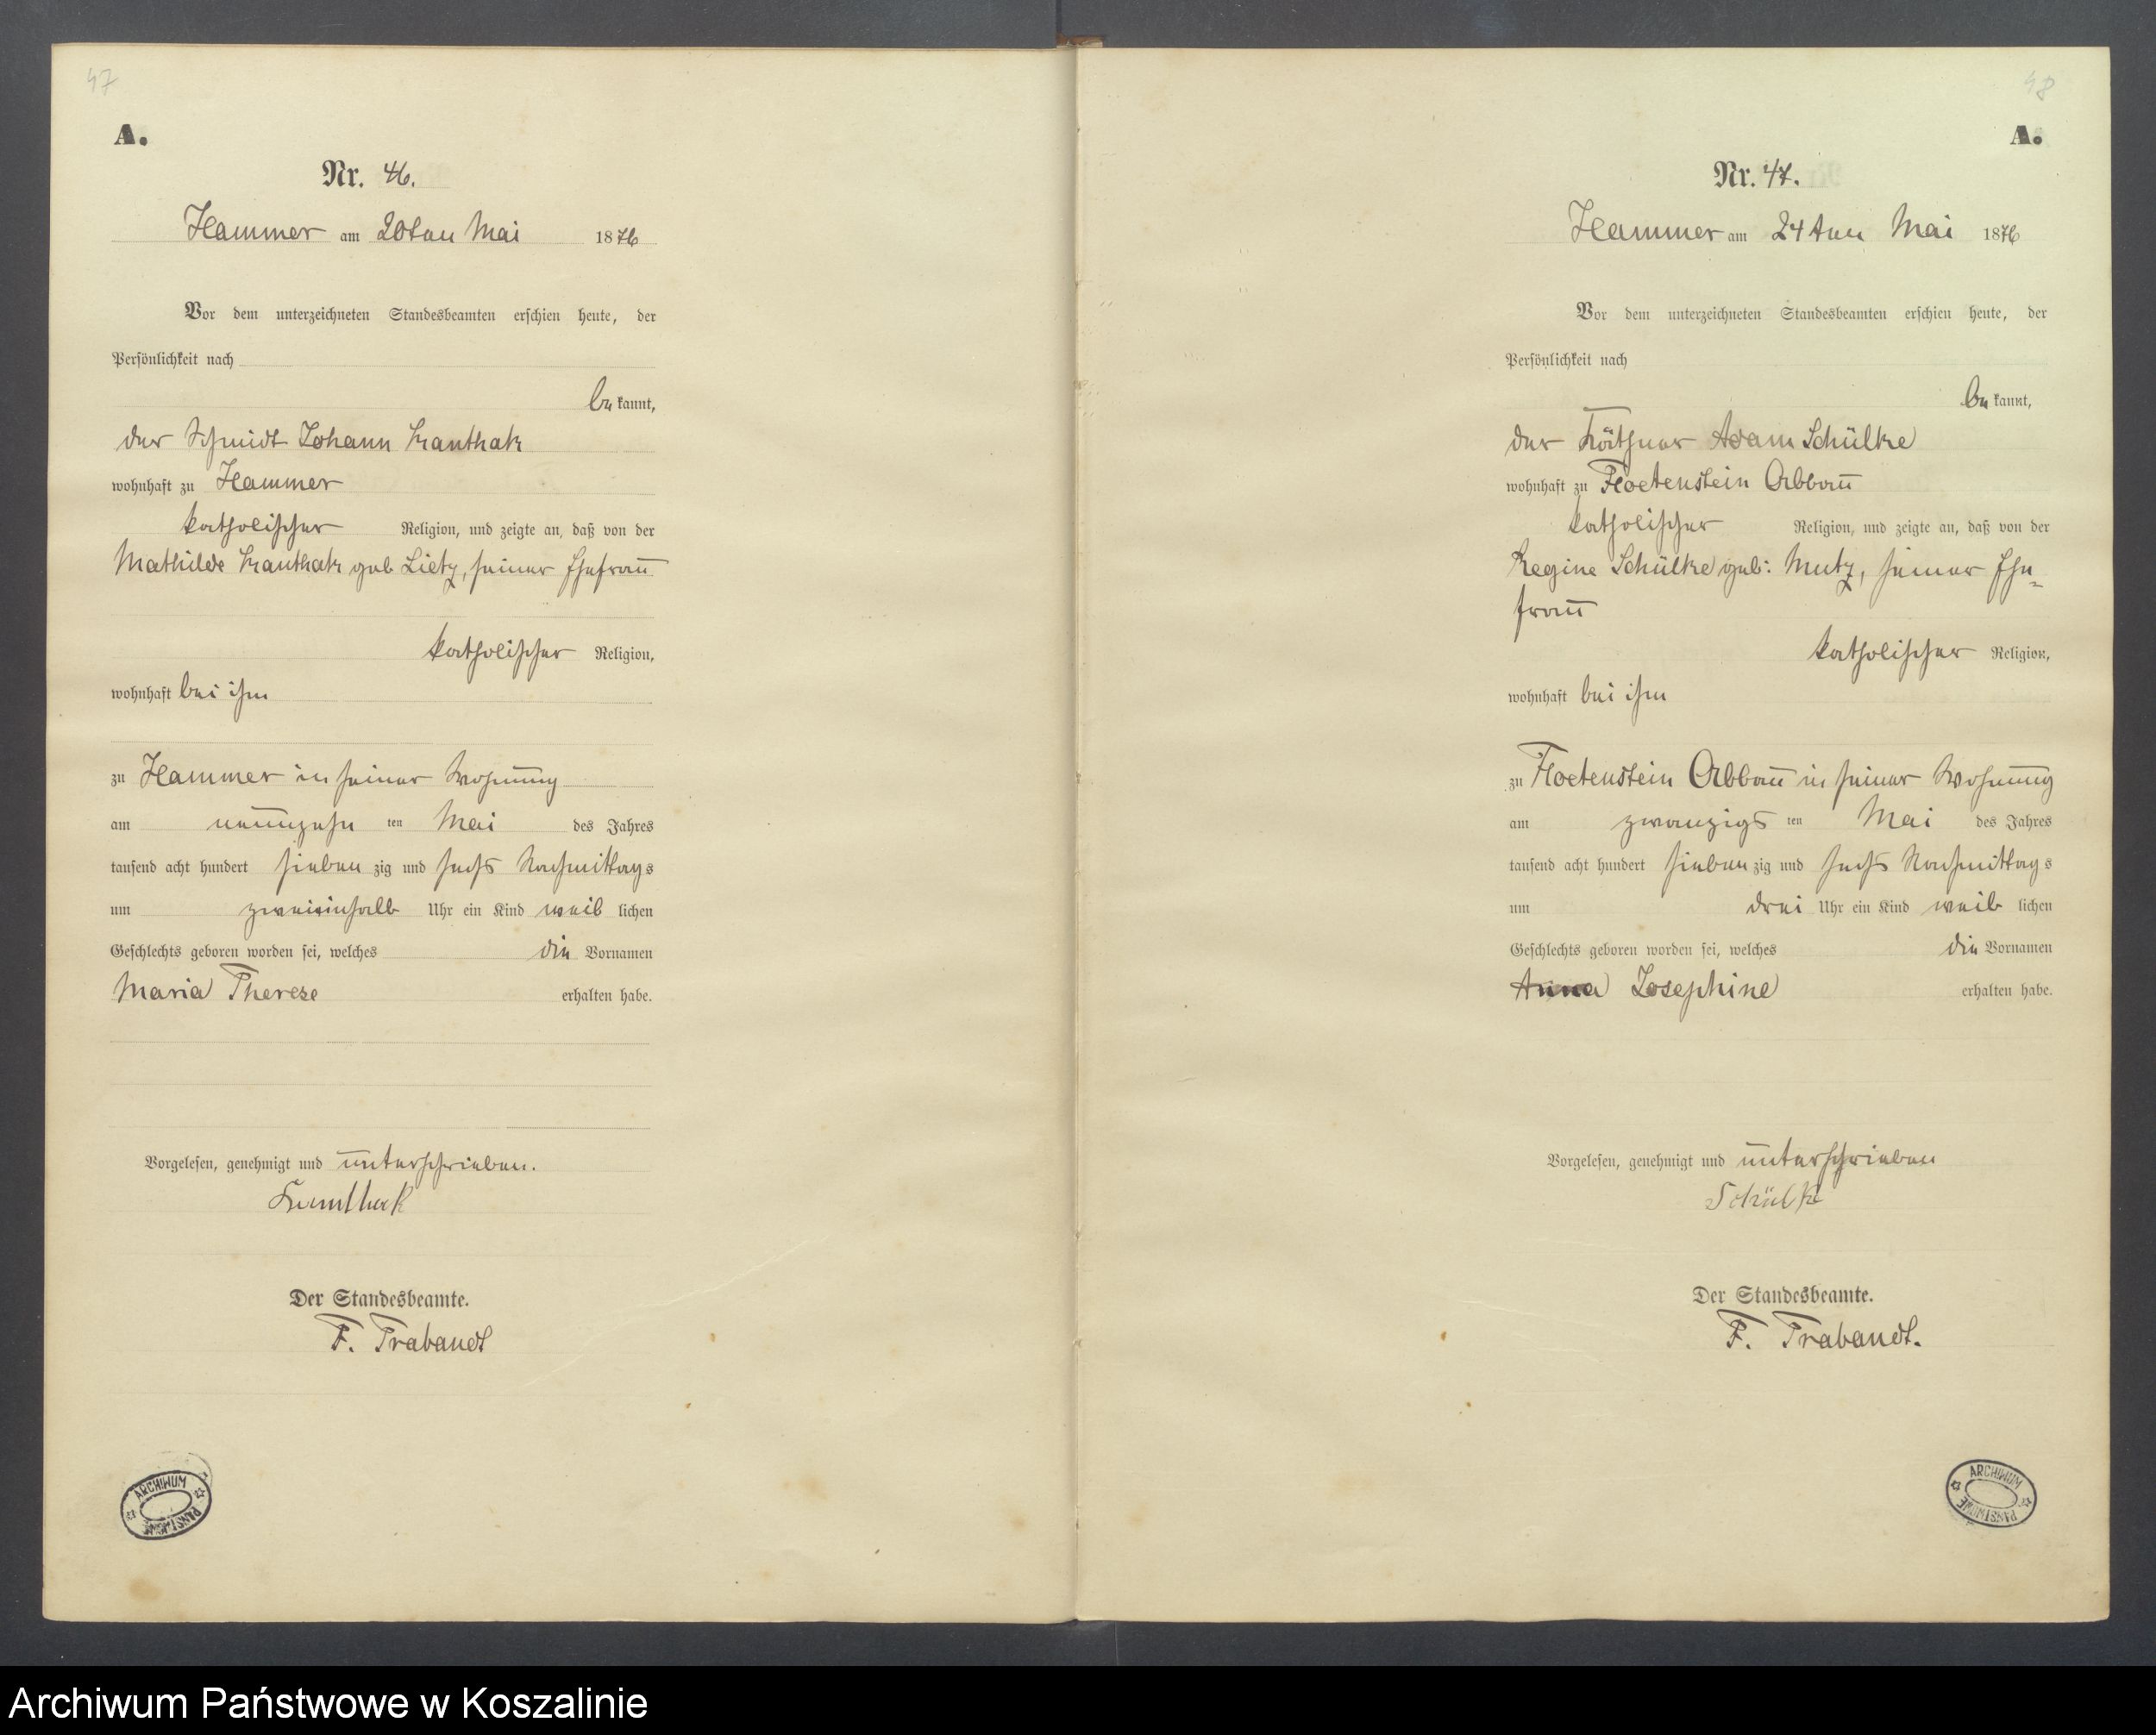 47
A.
Nr. 46.
Hammer am 20ten Mai 1876
Vor dem unterzeichneten Standesbeamten erschien heute, der
Persönlichkeit nach
be kannt,
der Schmidt Johann Kanthak
wohnhaft zu Hammer
katholischer Religion, und zeigte an, daß von der
Mathilde Kanthak geb Lietz, seiner Ehefrau
katholischer Religion,
wohnhaft bei ihm
zu Hammer in seiner Wohnung
am neunzehn ten Mai des Jahres
tausend acht hundert sieben zig und sechs Nachmittag s
um zweieinhalb Uhr ein Kind weib lichen
Geschlechts geboren worden sei, welches die Vornamen
Maria Therese erhalten habe.
Vorgelesen, genehmigt und unterschrieben.
Kanthak
Der Standesbeamte.
F. Trabandt
ARCHIWUM PAŃSTWOWE
48
A.
Nr. 47.
Hammer am 24ten Mai 1876
Vor dem unterzeichneten Standesbeamten erschien heute, der
Persönlichkeit nach
be kannt,
der Käthner Adam Schülke
wohnhaft zu Floetenstein Abbau
katholischer Religion, und zeigte an, daß von der
Regine Schülke geb: Mutz, seiner Ehe-
frau
katholischer Religion,
wohnhaft bei ihm
zu Floetenstein Abbau in seiner Wohnung
am zwanzigs ten Mai des Jahres
tausend acht hundert sieben zig und sechs Nachmittag s
um drei Uhr ein Kind weib lichen
Geschlechts geboren worden sei, welches die Vornamen
Anna Josephine erhalten habe.
Vorgelesen, genehmigt und unterschrieben
Schülke
Der Standesbeamte.
F. Trabandt.
ARCHIWUM PAŃSTWOWE
Archiwum Państwowe w Koszalinie